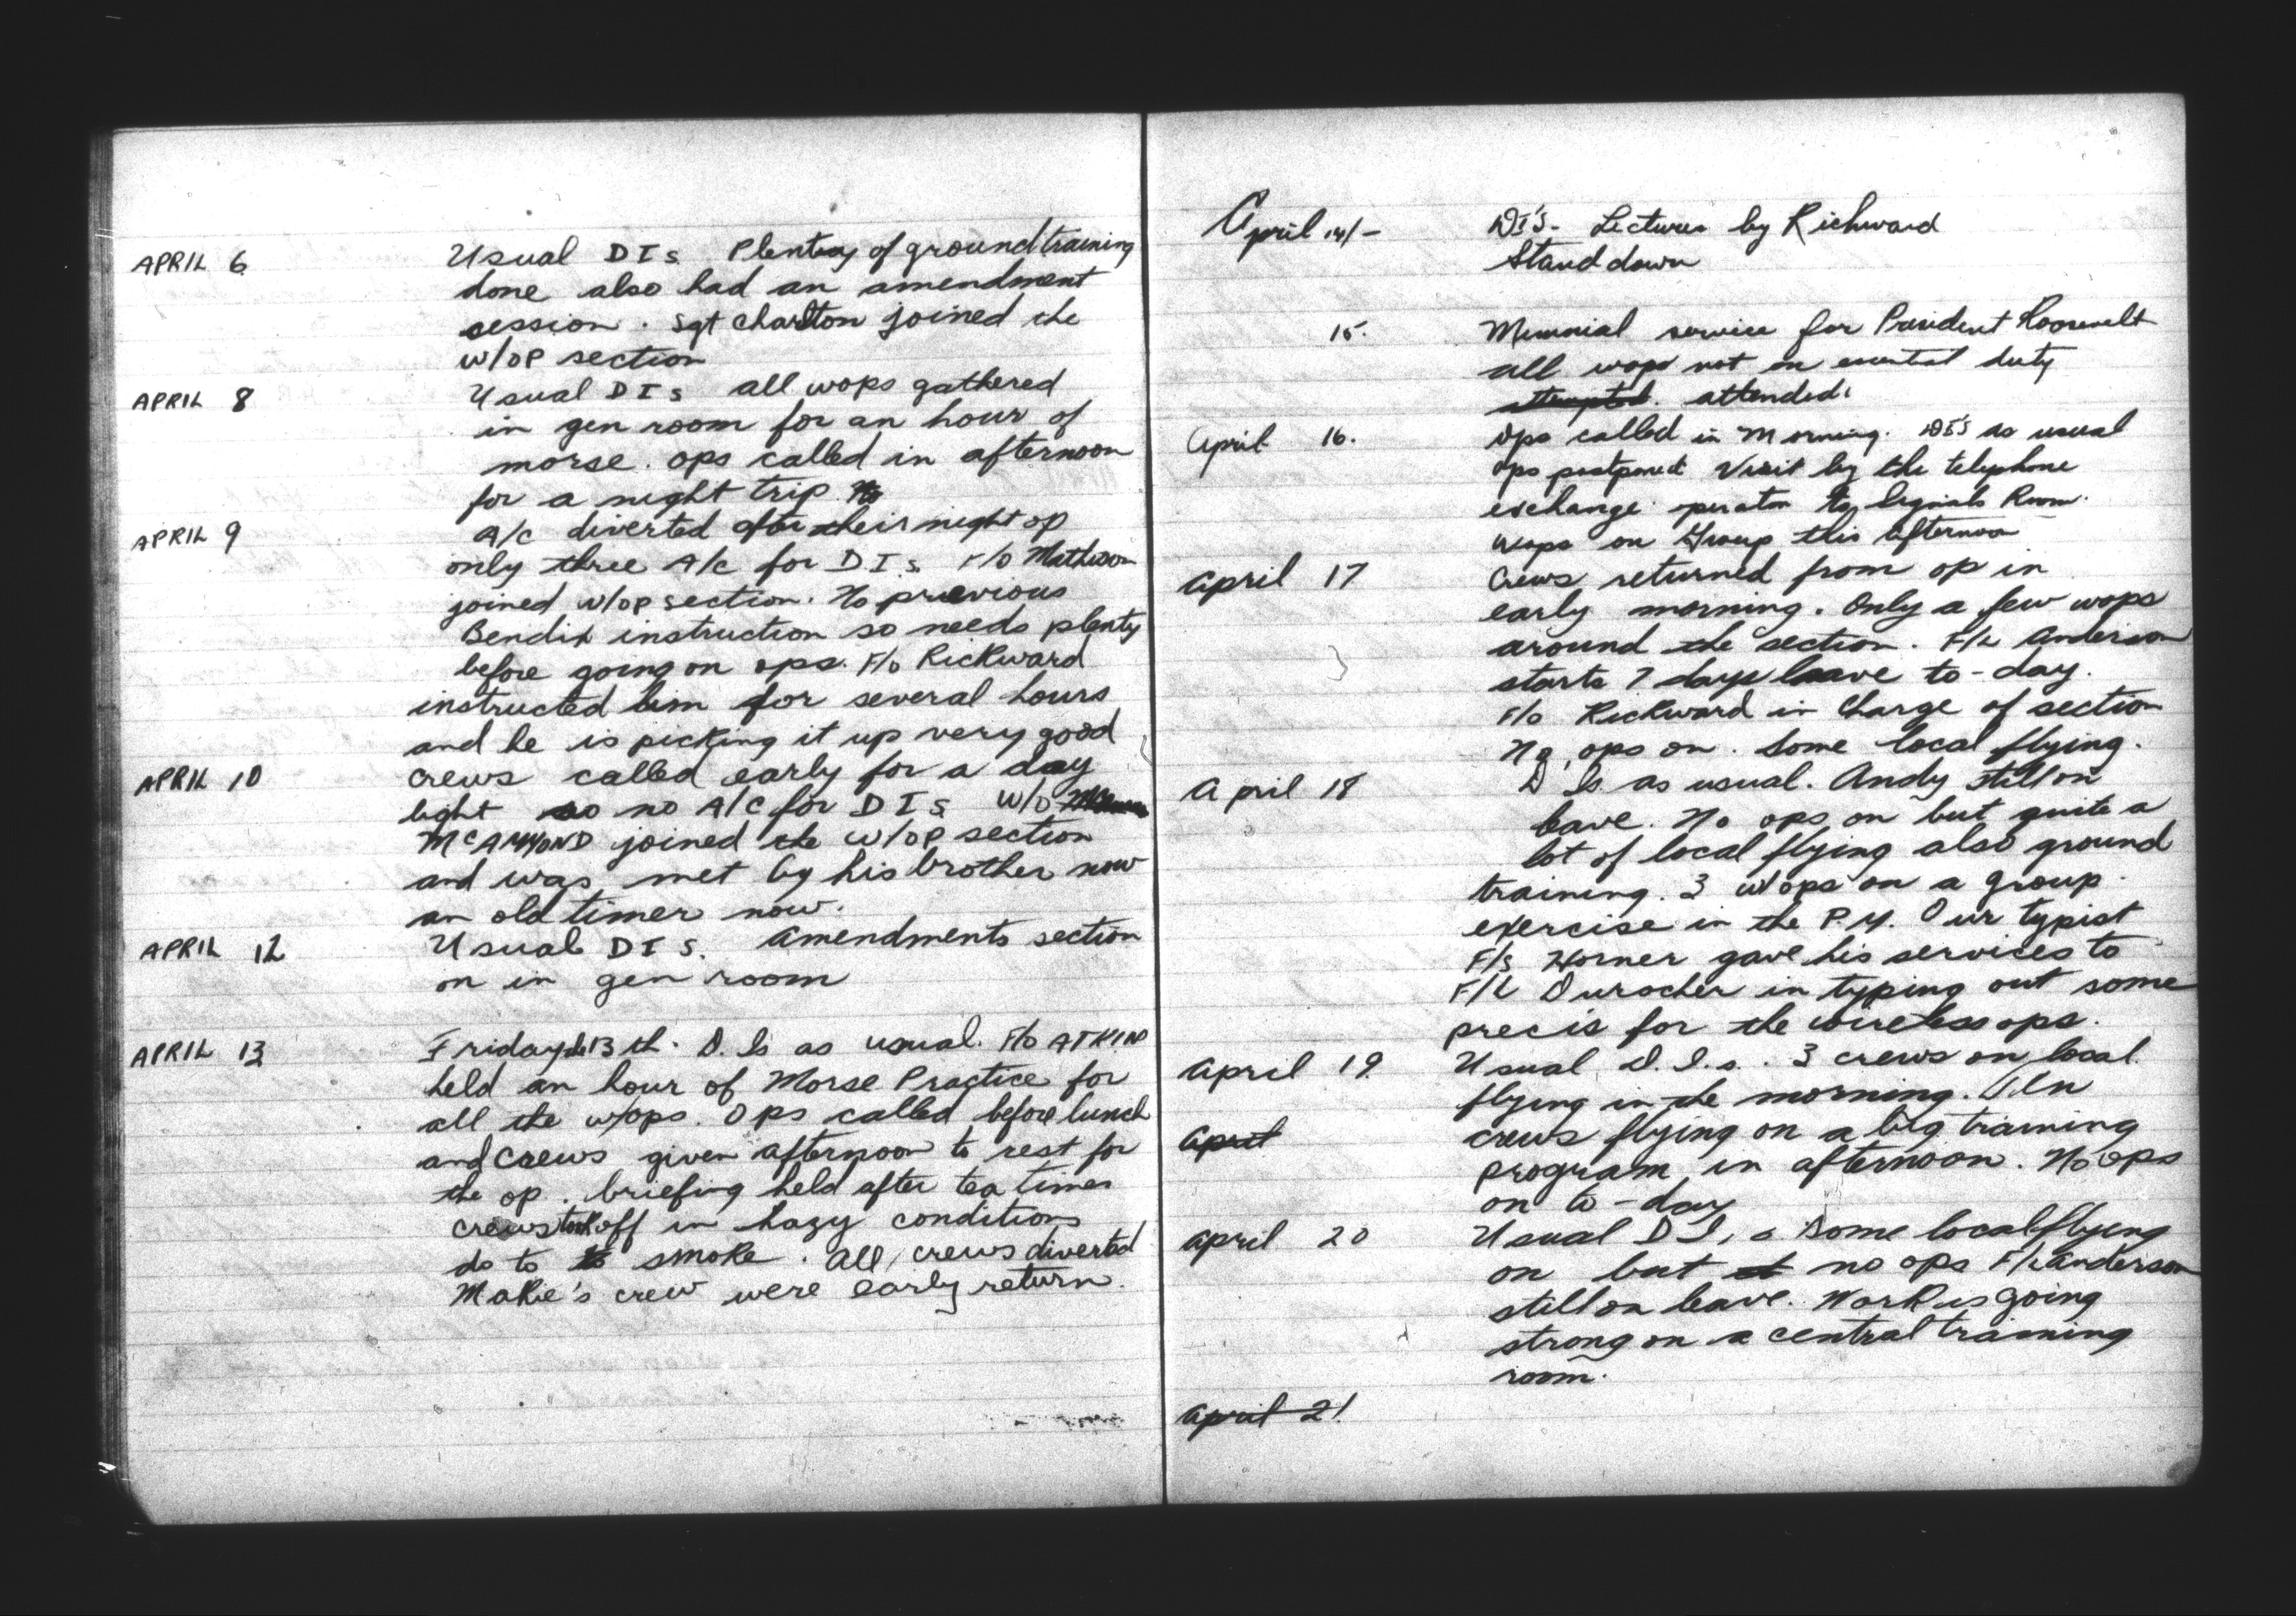 APRIL 6 Usual DIs Plenty of ground training
done also had an amendment
session. Sgt Charlton joined the
w/op section
APRIL 8 Usual DIs all wops gathered
in gen room for an hour of
morse. ops called in afternoon
for a night trip. No
APRIL 9 A/C diverted after their night op
only three A/C for D.I.s. F/O Matheson
joined w/op section. No previous
Bendix instruction so needs plenty
before going on ops. F/o Rickward
instructed him for several hours
and he is picking it up very good
APRIL 10 crews called early for a day
light so no A/C for DIS W/O
McAMMOND joined the w/op section
and was met by his brother now
an old timer now.
APRIL 12 Usual DIS. Amendments section
on in gen room
APRIL 13 Friday the 13th. D.Is as usual. F/o ATKIN
held an hour of Morse Practice for
all the w/ops. Ops called before lunch
and crews given afternoon to rest for
the op. briefing held after tea times
crews took off in hazy conditions
do to to smoke. All crews diverted
Makie's crew were early return.
April 14/- DI'S- Lectures by Richward
Stand down
15. Memorial service for President Roosevelt
all wops not on essential duty
attempted. attended.
April 16. Ops called in Morning. DI's as usual
ops postponed Visit by the telephone
exchange operator to Signals Room.
Wops on Group this afternoon
April 17 Crews returned from op in
early morning. Only a few wops
around the section. F/L Anderson
starts 7 days leave to-day.
F/o Rickward in Charge of section
No ops on. Some local flying.
April 18 D Is as usual. Andy still on
leave. No ops on but quite a
lot of local flying also ground
training. 3 w/ops on a group
exercise in the P.M. Our typist
F/s Horner gave his services to
F/L Durocher in typing out some
precis for the wireless ops.
April 19. Usual D.I.s. 3 crews on local
flying in the morning. Ten
April crews flying on a big training
program in afternoon. No ops
on to-day
April 20 Usual D I,s Some local flying
on but no ops F/L Anderson
still on leave. Work is going
strong on a central training
room.
April 21